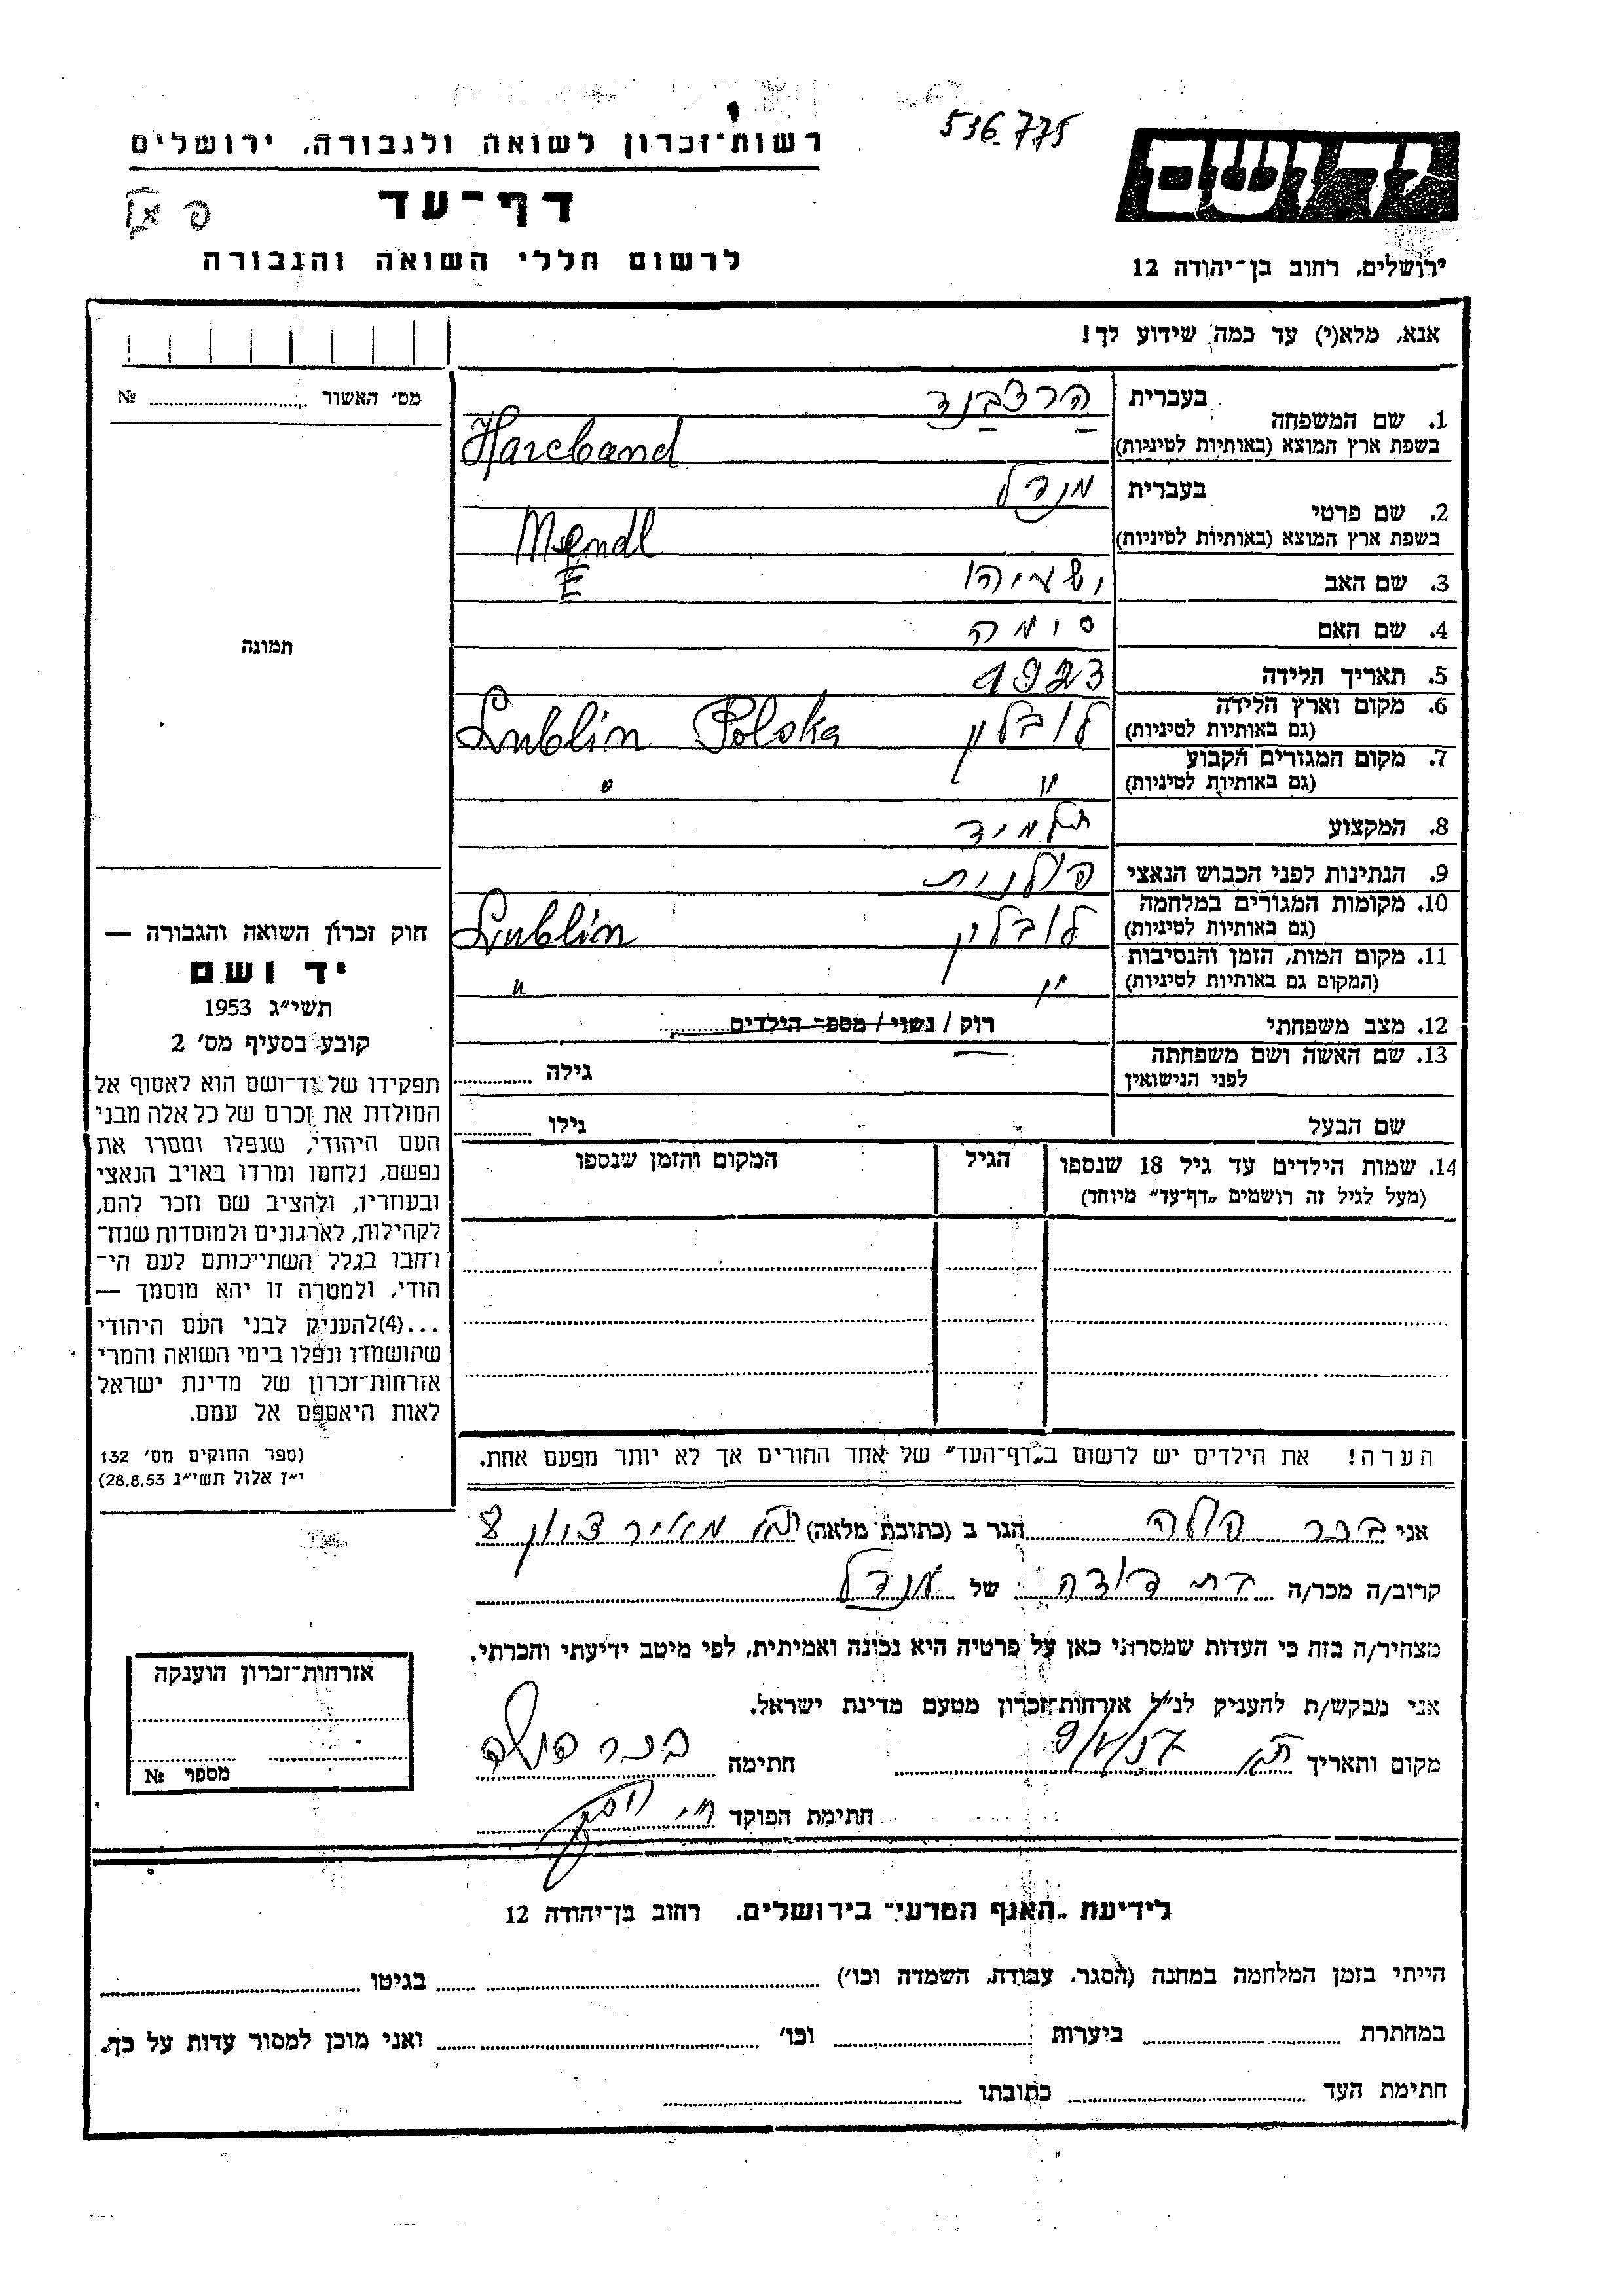 536.775
יד ושם
רשות־זכרון לשואה ולגבורה, ירושלים
דף־עד
לרשום חללי השואה והגבורה
ירושלים, רחוב בן־יהודה 12
אנא, מלא(י) עד כמה שידוע לך!
מס׳ האשור № 
1. שם המשפחה בעברית הרצבנד
בשפת ארץ המוצא (באותיות לטיניות) Harcband
2. שם פרטי בעברית מנדל
בשפת ארץ המוצא (באותיות לטיניות) Mendl
E
3. שם האב ישעיהו
4. שם האם סימה
5. תאריך הלידה 1923
6. מקום וארץ הלידה (גם באותיות לטיניות) לובלין Lublin Polska
7. מקום המגורים הקבוע (גם באותיות לטיניות) " "
8. המקצוע תלמיד
9. הנתינות לפני הכבוש הנאצי פולנית
10. מקומות המגורים במלחמה (גם באותיות לטיניות) לובלין Lublin
11. מקום המות, הזמן והנסיבות (המקום גם באותיות לטיניות) " "
12. מצב משפחתי רוק / נשוי / מספר הילדים
13. שם האשה ושם משפחתה לפני הנישואין גילה
שם הבעל גילו
14. שמות הילדים עד גיל 18 שנספו הגיל המקום והזמן שנספו
(מעל לגיל זה רושמים „דף־עד״ מיוחד)
הערה! את הילדים יש לרשום ב„דף־העד״ של אחד ההורים אך לא יותר מפעם אחת.
תמונה
חוק זכרון השואה והגבורה —
יד ושם
תשי״ג 1953
קובע בסעיף מס׳ 2
תפקידו של יד־ושם הוא לאסוף אל
המולדת את זכרם של כל אלה מבני
העם היהודי, שנפלו ומסרו את
נפשם, נלחמו ומרדו באויב הנאצי
ובעוזריו, ולהציב שם וזכר להם,
לקהילות, לארגונים ולמוסדות שנח־
רחבו בגלל השתייכותם לעם הי־
הודי, ולמטרה זו יהא מוסמך —
...(4)להעניק לבני העם היהודי
שהושמדו ונפלו בימי השואה והמרי
אזרחות־זכרון של מדינת ישראל
לאות היאספם אל עמם.
(ספר החוקים מס׳ 132
י״ז אלול תשי״ג 28.8.53)
אני בכר פולה הגר ב (כתובת מלאה) ת״א מאיר ציון 8
קרוב/ה מכר/ה בת דודה של מנדל
מצהיר/ה בזה כי העדות שמסרתי כאן על פרטיה היא נכונה ואמיתית, לפי מיטב ידיעתי והכרתי.
אני מבקש/ת להעניק לנ״ל אזרחות־זכרון מטעם מדינת ישראל.
מקום ותאריך ת״א חתימה בכר פולה
חתימת הפוקד
אזרחות־זכרון הוענקה
מספר №
לידיעת „האגף המדעי״ בירושלים. רחוב בן־יהודה 12
הייתי בזמן המלחמה במחנה (הסגר, עבודה, השמדה וכו׳) בגיטו
במחתרת ביערות וכו׳ ואני מוכן למסור עדות על כך.
חתימת העד כתובתו